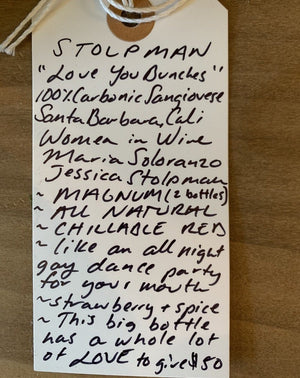 STOLPMAN
"Love You Bunches"
100% Carbonic Sangiovese
Santa Barbara, Cali
Women in Wine
Maria Soloranzo
Jessica Stolpman
~ MAGNUM (2 bottles)
~ ALL NATURAL
~ CHILLABLE RED
~ like an all night
gay dance party
for your mouth
~ strawberry + spice
~ This big bottle
has a whole lot
of LOVE to give $50